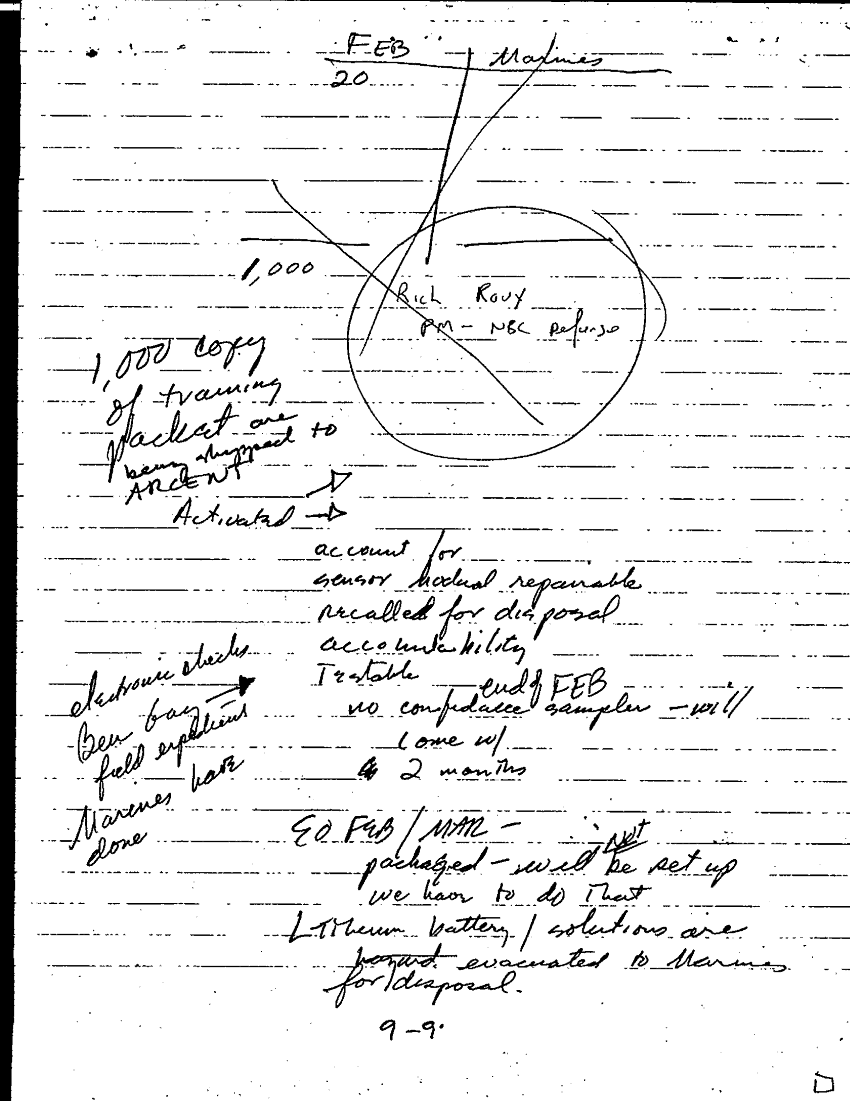 FEB Marines
20
1,000
Rich Roux
PM - NBC Defense
1,000 copy
of training
packet are
being shipped to
ARCENT
Activated
account for
sensor modual repairable
recalled for disposal
accountability
Testable
end of FEB
no confidence sampler - will
come w/
2 months
electronic checks
field expedient
Marines have
done
EO FEB / MAR -
not
packaged - will be set up
we have to do that
LTtherum battery / solutions are
hazard evacuated to Marines
for disposal.
9-9